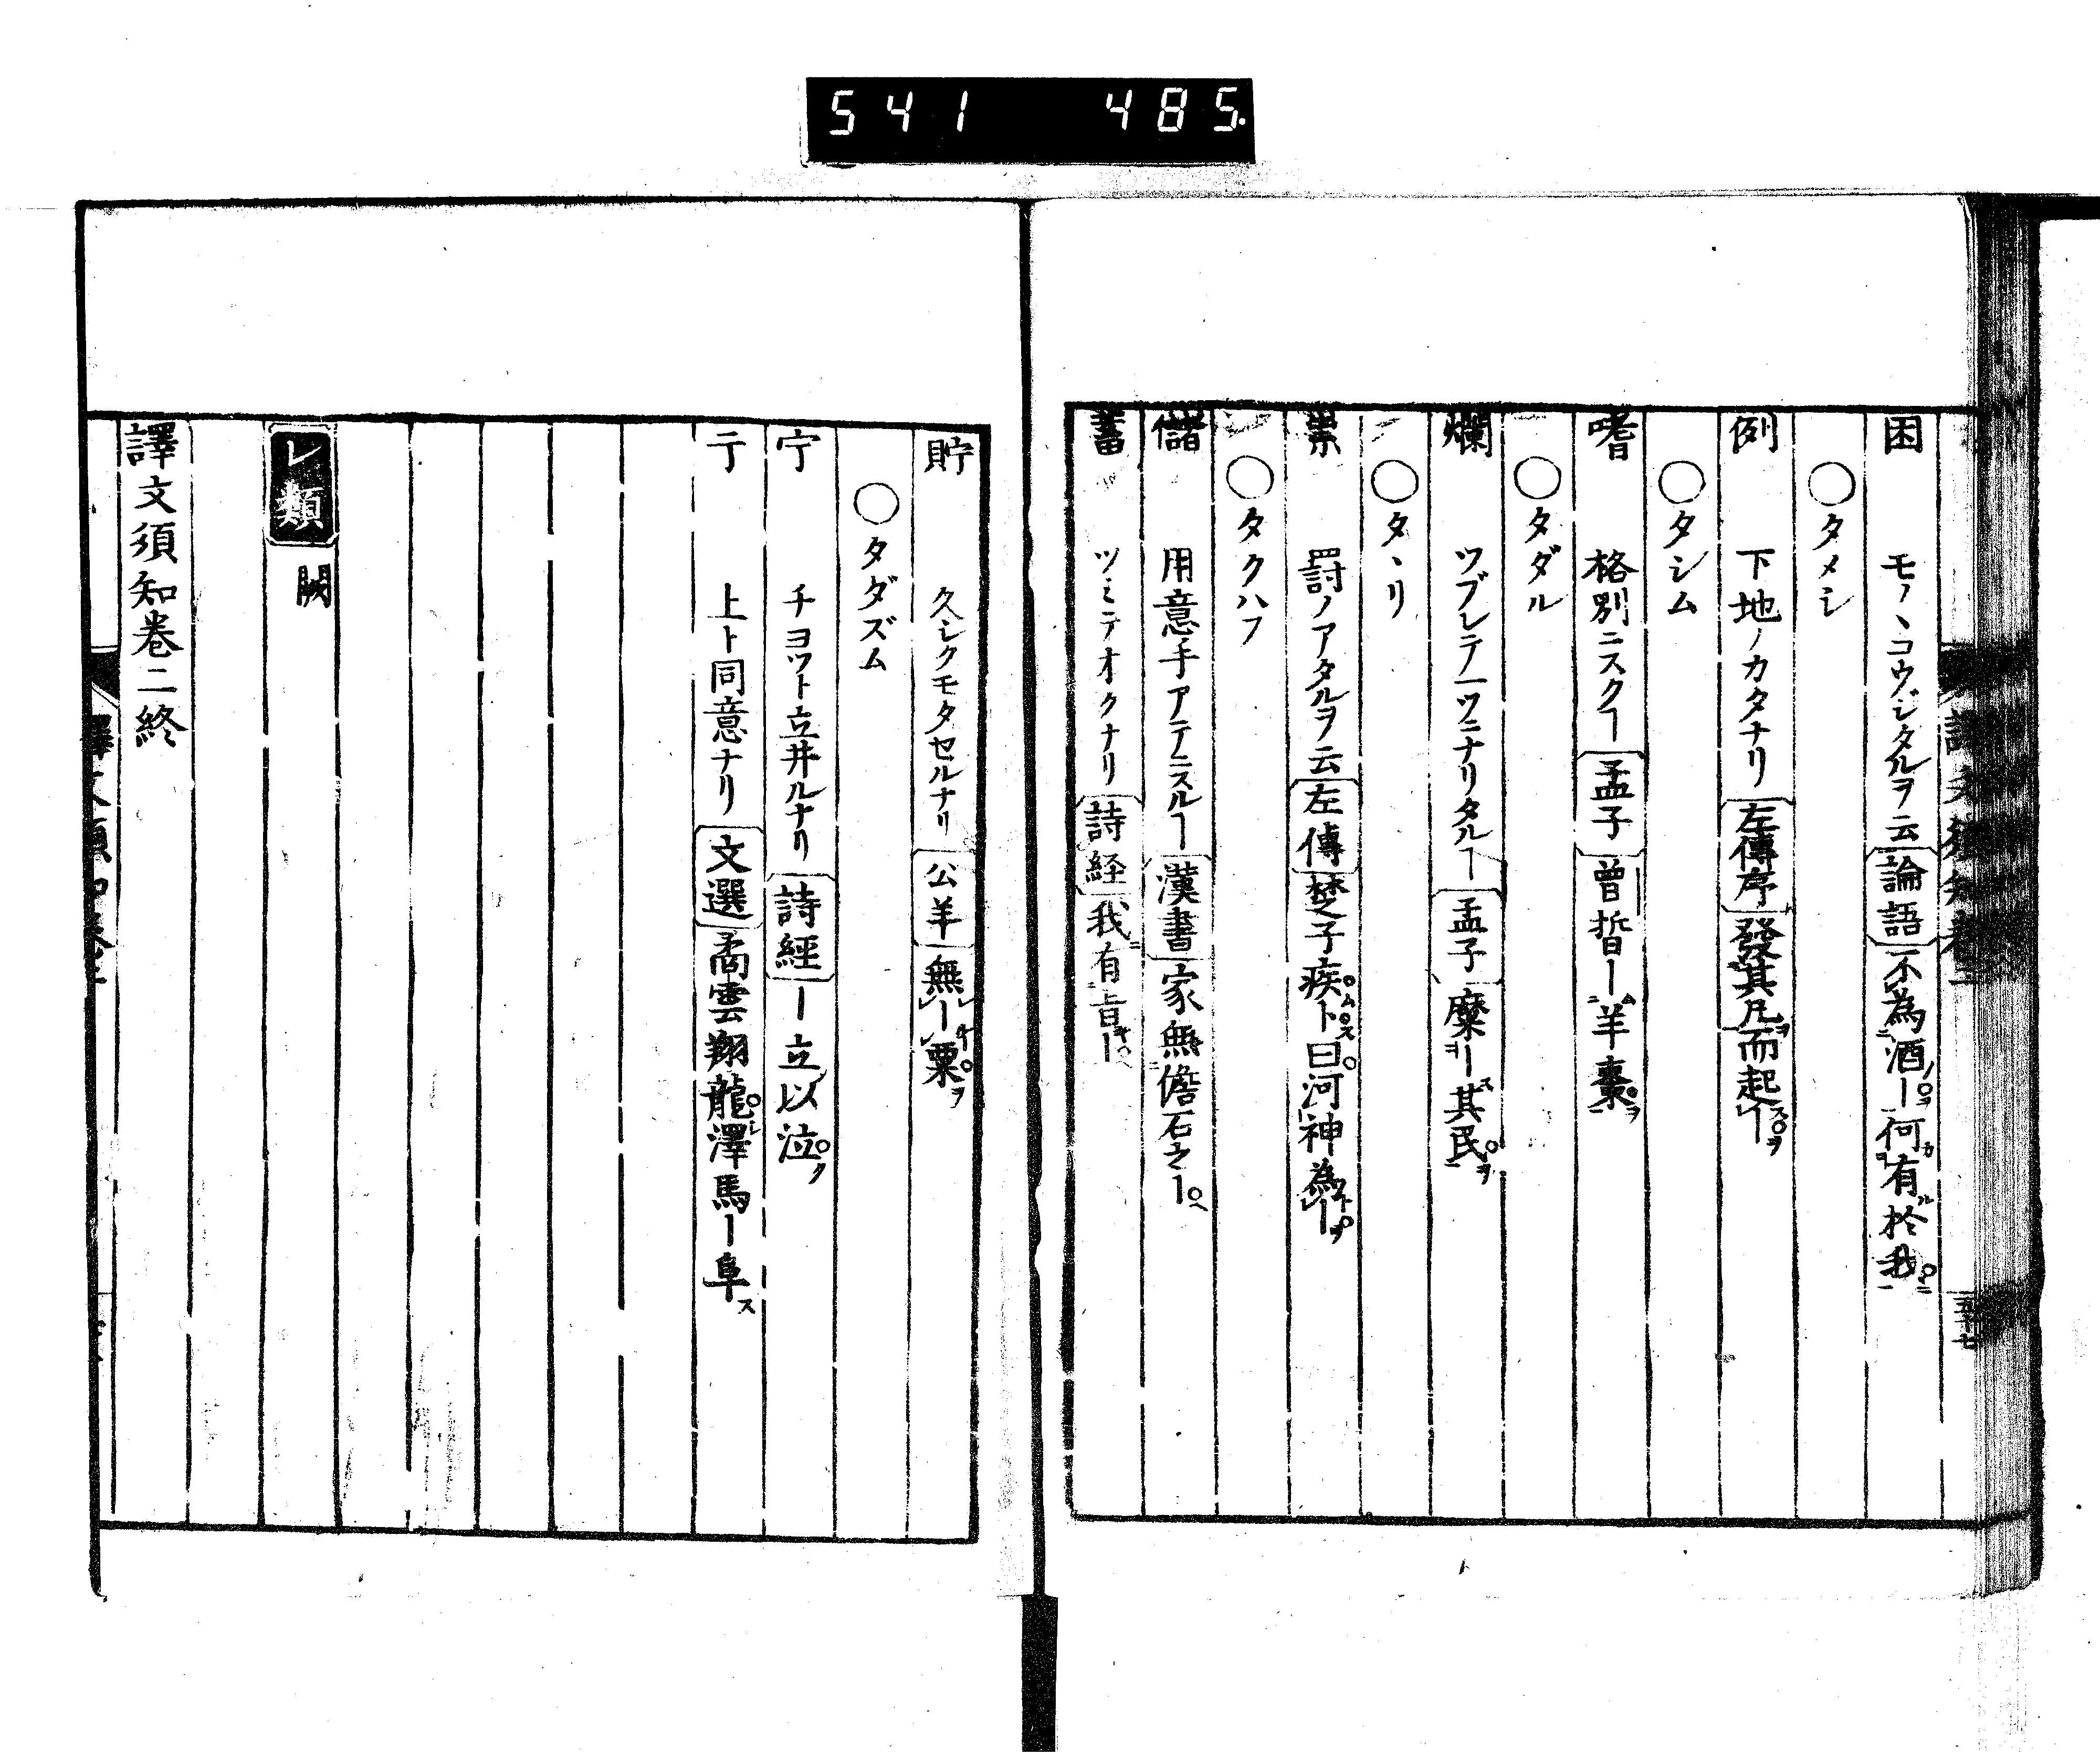 541 485.
困 モノヽコウジタルヲ云 論語 不為酒ー何有於我
○タメシ
例 下地ノカタナリ 左傳序 發其凡而起ー
○タシム
嗜 格別ニスクー 孟子 曾晳ー羊棗
○タダル
爛 ツブレテ一ツニナリタルー 孟子 糜ー其民
○タヽリ
祟 罸ノアタルヲ云 左傳 楚子疾卜曰河神為ー
○タクハフ
儲 用意手アテニスルー 漢書 家無儋石之ー
蓄 ツミテオクナリ 詩経 我有旨ー
貯 久シクモタセルナリ 公羊 無ー粟
○タダズム
宁 チヨツト立井ルナリ 詩經 ー立以泣
亍 上ト同意ナリ 文選 矞雲翔龍澤馬ー阜
レ類 闕
譯文須知巻二終